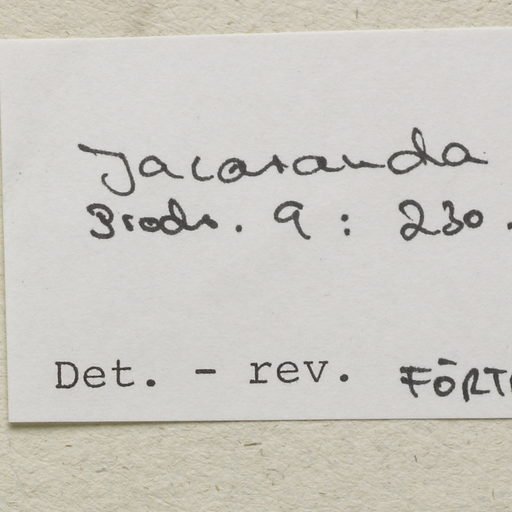 Jacaranda
Prodr. 9 : 230.
Det. - rev. FÖRT